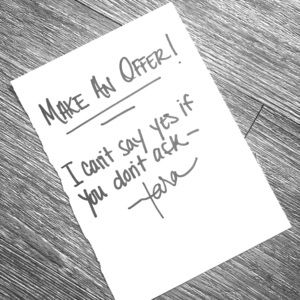 MAKE AN OFFER!
I can't say yes if
you don't ask—
-Yara